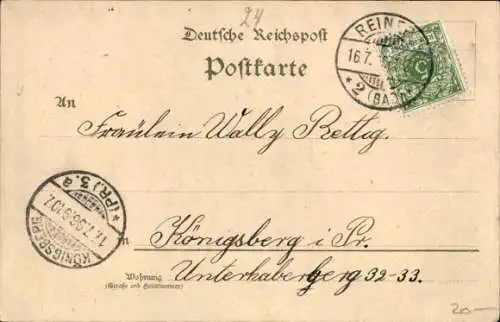 24
Deutsche Reichspost
Postkarte
REINERZ
16.7.
* 2 (BAD)
An
Fräulein Wally Rettig.
KÖNIGSBERG
17.7.98.9-10.V.
* (PR.) 5. a
in Königsberg i Pr.
Wohnung
(Straße und Hausnummer)
Unterhaberberg 32-33.
20-